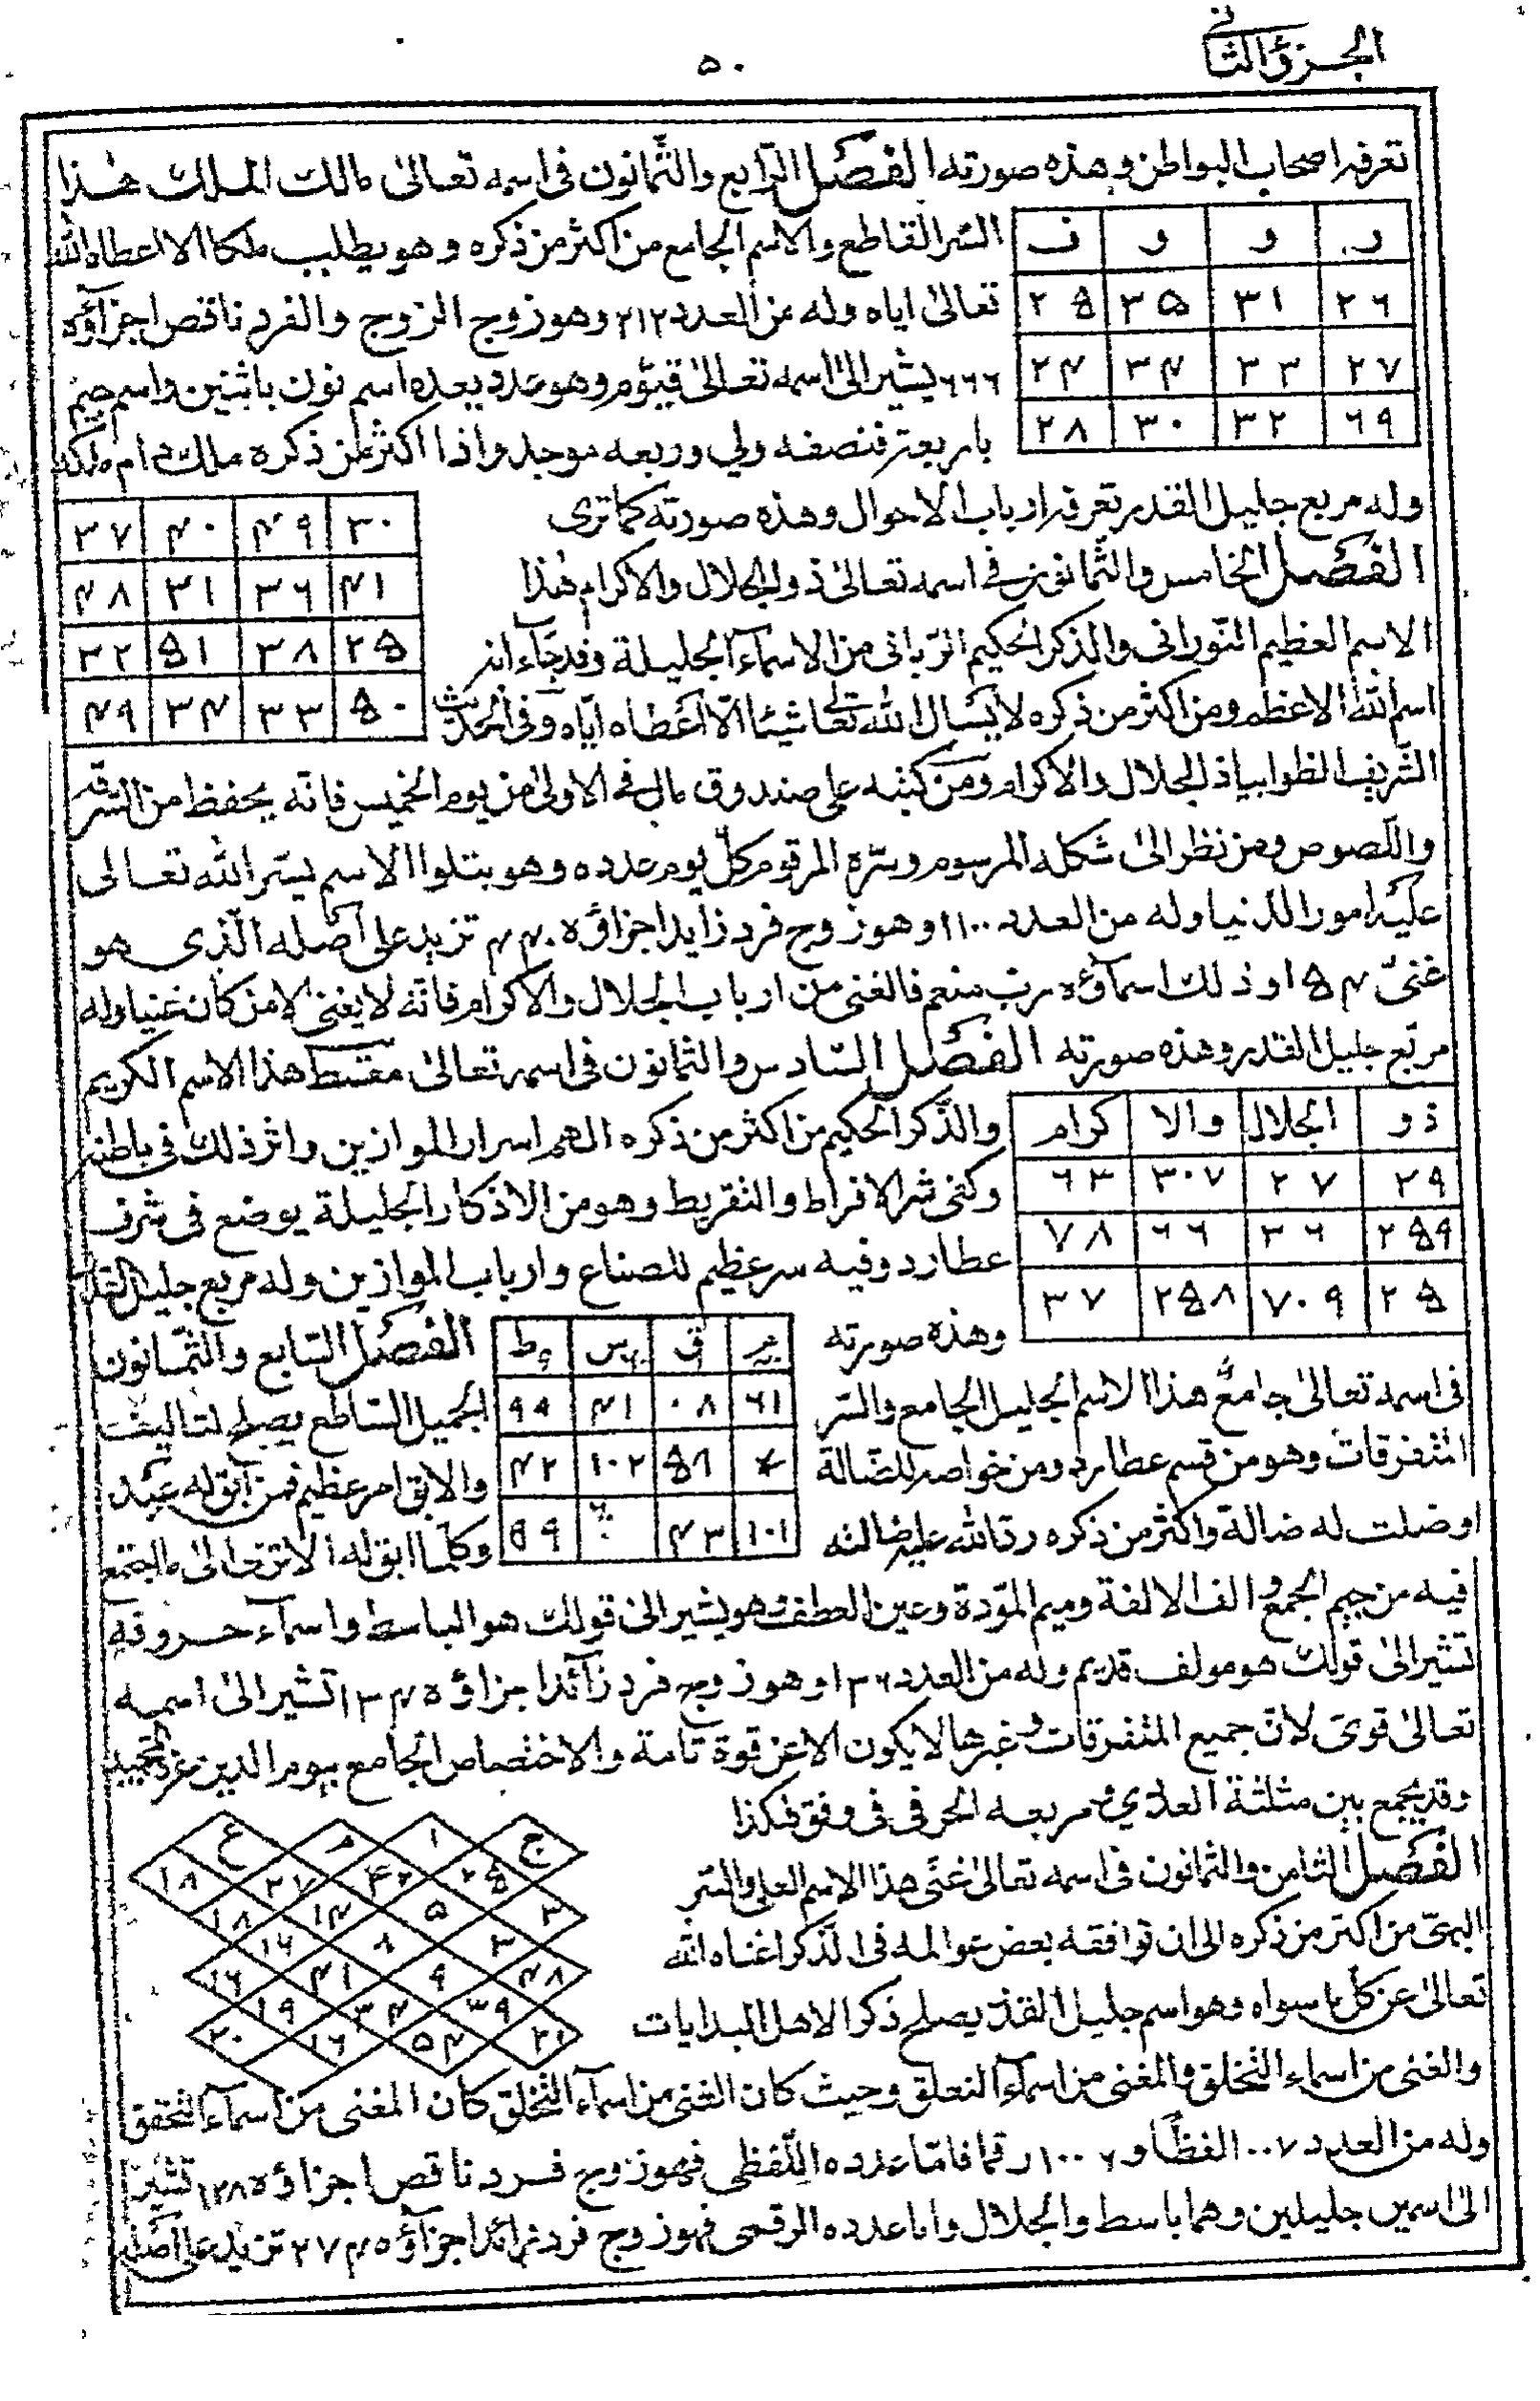 الجزؤ الثانى
٥٠
تعرفه اصحاب البواطن وهذه صورته الفصل الرابع والثمانون فى اسمه تعالى مالك الملك هذا
ر و و ف
السر القاطع والاسم الجامع من اكثر من ذكره وهو يطلب ملكا الا اعطاه الله
٢٦ ٣١ ٣٥ ٢۵
تعالى اياه وله من العدد ٢١٢ وهو زوج الزوج والفرد ناقص اجزاؤه
٢٧ ٣٣ ٣٤ ٢٤
٦٦٦ يشير الى اسمه تعالى قيوم وهو عدد يعده اسم نون باثنين واسم
٦٩ ٣٢ ٣٠ ٢٨
باربعة فنصفه ولي وربعه موجد واذا اكثر من ذكره ملك دام ملكه
وله مربع جليل القدر تعرفه ارباب الاحوال وهذه صورته كما ترى
٣٠ ٤٩ ٤٠ ٣٧
الفصل الخامس والثمانون فى اسمه تعالى ذو الجلال والاكرام هذا
٤١ ٣٦ ٣١ ٤٨
الاسم العظيم النورانى والذكر الحكيم الربانى من الاسماء الجليلة وقد جاء انه
٢۵ ٣٨ ۵١ ٣٢
اسم الله الاعظم ومن اكثر من ذكره لا يسال الله تعالى شيئا الا اعطاه اياه وفى الحديث
۵٠ ٣٣ ٣٤ ٤٩
الشريف الظوا بياذ الجلال والاكرام ومن كتبه على صندوق مال فى الاولى من يوم الخميس فانه يحفظ من السرقة
واللصوص ومن نظر الى شكله المرسوم وسره المرقوم كل يوم عدده وهو يتلوا الاسم يسر الله تعالى
عليه امور الدنيا وله من العدد ١١٠٠ وهو زوج فرد زايد اجزاؤه ٤٤٠ تزيد على اصله الذى هو
غنى ٤۵١ وذلك اسماؤه رب منعم فالغنى من ارباب الجلال والاكرام فانه لا يغنى الا من كان غنيا وله
مربع جليل القدر وهذه صورته الفصل السادس والثمانون فى اسمه تعالى مقسط هذا الاسم الكريم
ذو الجلال والا كرام
والذكر الحكيم من اكثر من ذكره الهم اسرار الموازين واثر ذلك فى باطنه
٢٩ ٢٧ ٣٠٧ ٦٣
وكفى شر الافراط والتفريط وهو من الاذكار الجليلة يوضع فى شرف
٢۵٩ ٣٦ ٦٦ ٧٨
عطارد وفيه سر عظيم للصناع وارباب الموازين وله مربع جليل القدر
٢۵ ٧٠٩ ٢۵٨ ٣٧
وهذه صورته
م ق س ط
الفصل السابع والثمانون
فى اسمه تعالى جامع هذا الاسم الجليل الجامع والسر
٦١ ٠٨ ٤١ ٩٩
الجميل الساطع يصلح لتاليف
المتفرقات وهو من قسم عطارد ومن خواصه للضالة
١٠٢ ٤٢
والابق امر عظيم فمن ابق له عبد
اوضلت له ضالة واكثر من ذكره رد الله عليه ضالته
١٠١ ٤٣
وكلما ابق له الا ترى الى ما اجتمع
فيه من جيم الجمع والف الالفة وميم المودة وعين العطف وهو يشير الى قولك هو الباسط واسماء حروفه
تشير الى قولك هو مولف قديم وله من العدد ١٣٦ وهو زوج فرد زائد اجزاؤه ١٣٤ تشير الى اسمه
تعالى قوى لان جميع المتفرقات وغيرها لا يكون الا عن قوة تامة والاختصاص الجامع بيوم الدين
وقد يجمع بين مثلثة العددي و مربعه الحرفى فى وفق هكذا
ج ا م ع
٢۵ ٤٢ ٢٧ ١٨
الفصل الثامن والثمانون فى اسمه تعالى غنى هذا الاسم العلى والسر
٣ ٥ ١٤ ١٨
البهى من اكثر من ذكره الى ان توافقه بعض عوالمه فى الذكر اغناه الله
٣ ٨ ١٦
٤٨ ٩ ٤١ ١٦
تعالى عن كل ما سواه وهو اسم جليل القدر يصلح ذكرا لاهل البدايات
٣٩ ٣٤ ١٩
٢١ ٥٤ ١٦ ٢٠
والغنى من اسماء التخلق والمغنى من اسماء التعلق وحيث كان الغنى من اسماء التخلق كان المغنى من اسماء التحقق
وله من العدد ١٠٠٧ لفظا و ١٠٠٦ رقما فاما عدده اللفظى فهو زوج فرد ناقص اجزاؤه ١٢٨ تشير
الى اسمين جليلين وهما باسط والجلال واما عدده الرقمى فهو زوج فرد زائد اجزاؤه ٢٧٤٥ تزيد على اصله